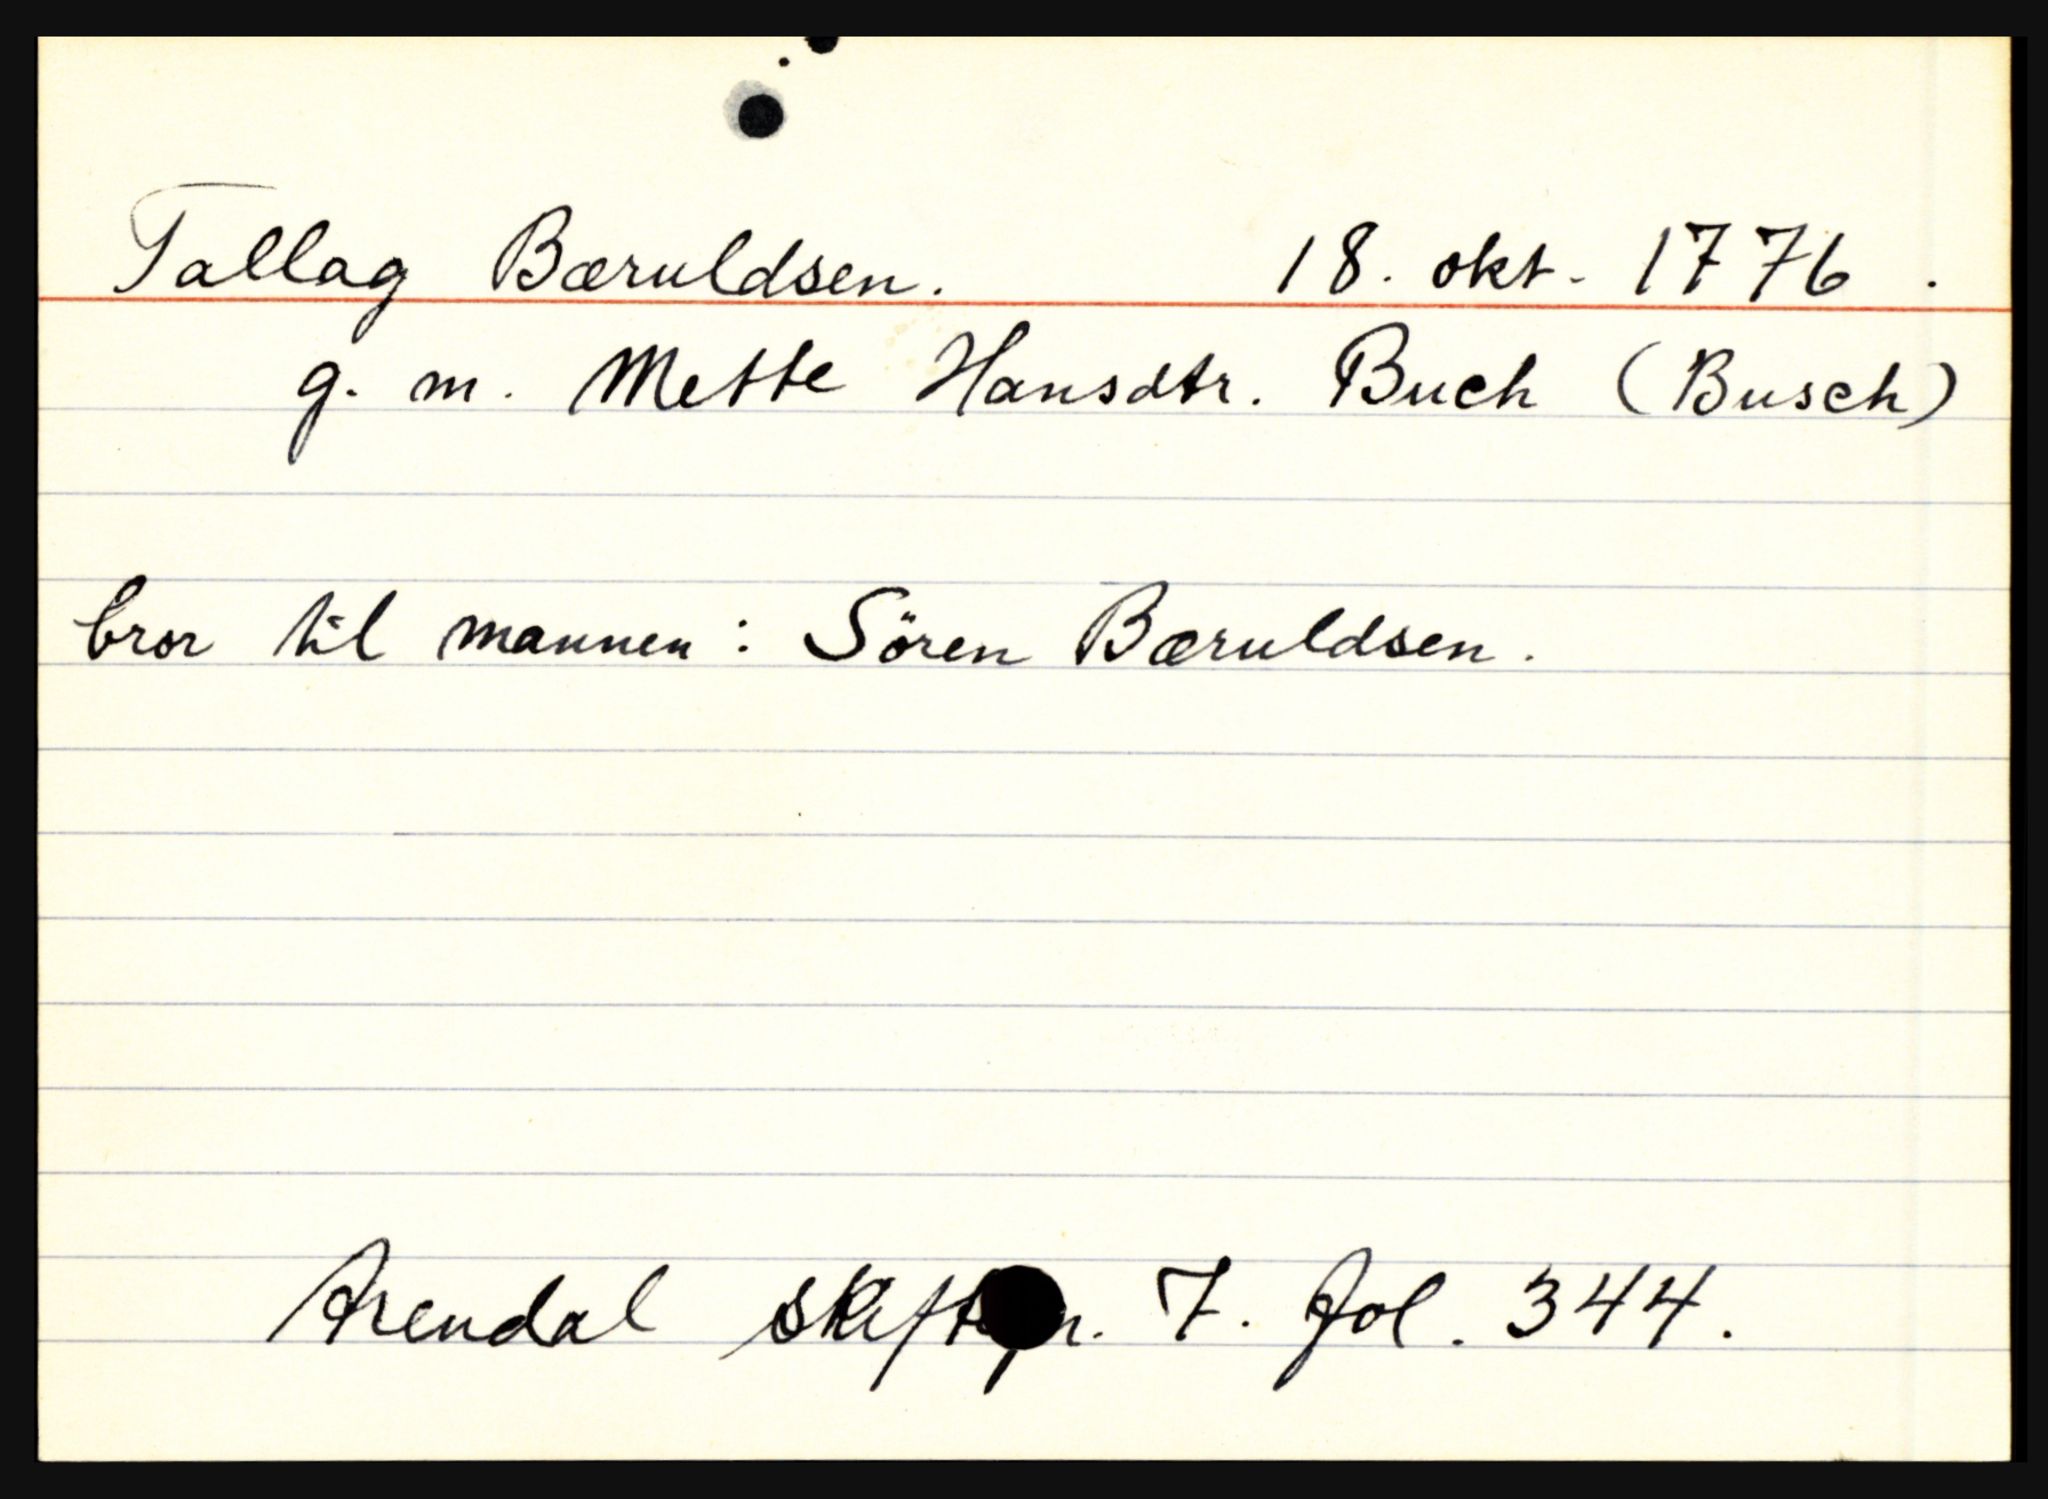 Tallag Bæruldsen. 18. okt. 1776.
g. m. Mette Hansdtr. Buch (Busch)
bror til mannen: Sören Bæruldsen.
Arendal 7. fol. 344.